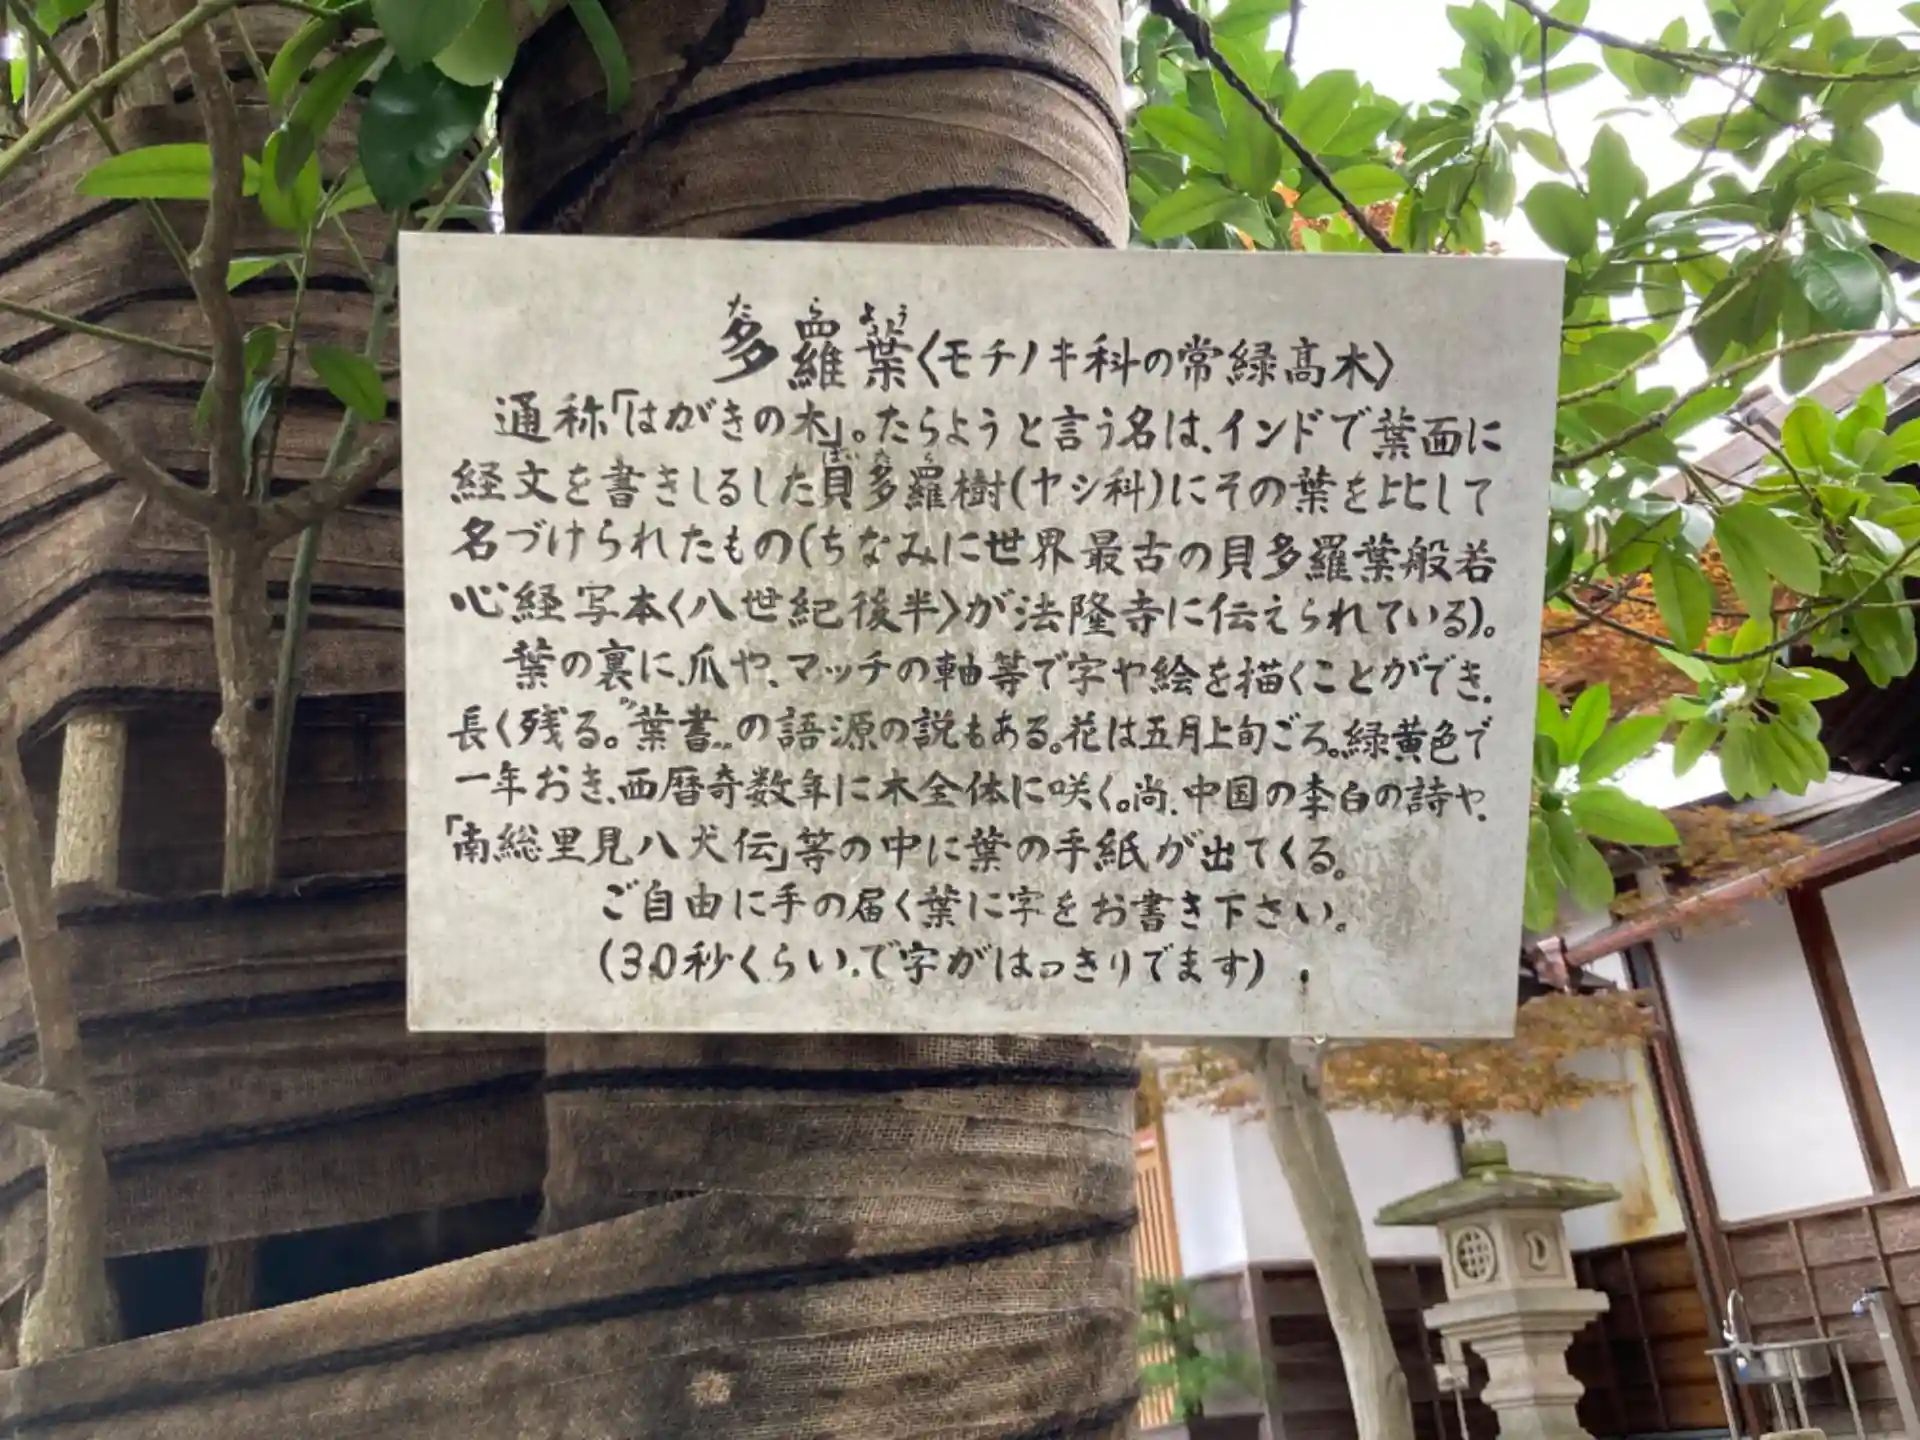 多羅葉〈モチノキ科の常緑高木〉
通称「はがきの木」。たらようと言う名は、インドで葉面に
経文を書きしるした貝多羅樹(ヤシ科)にその葉を比して
名づけられたもの(ちなみに世界最古の貝多羅葉般若
心経写本〈八世紀後半〉が法隆寺に伝えられている)。
葉の裏に、爪や、マッチの軸等で字や絵を描くことができ、
長く残る。"葉書"の語源の説もある。花は五月上旬ごろ。緑黄色で
一年おき、西暦奇数年に木全体に咲く。尚、中国の李白の詩や、
「南総里見八犬伝」等の中に葉の手紙が出てくる。
ご自由に手の届く葉に字をお書き下さい。
(30秒くらいで字がはっきりでます)